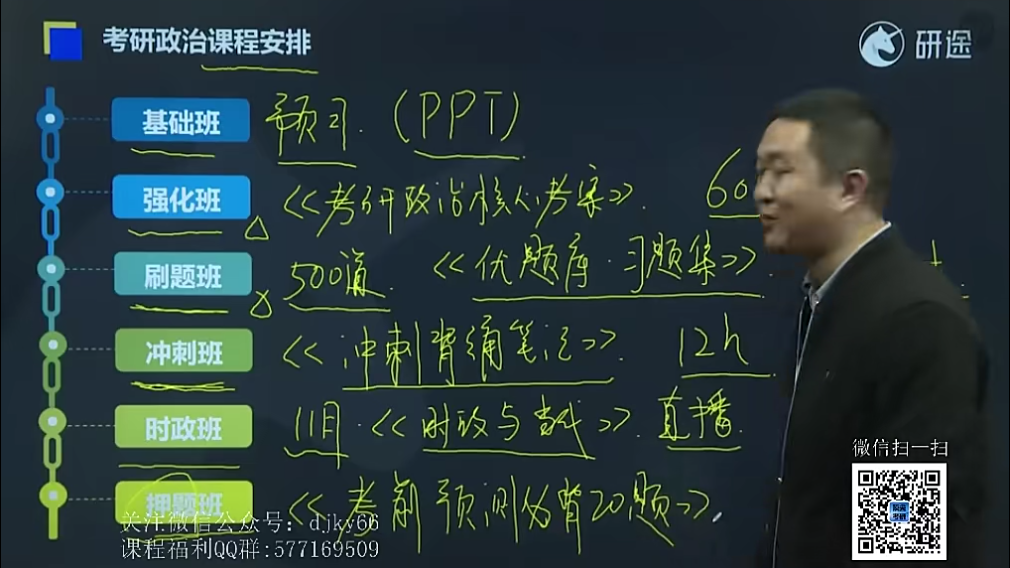 考研政治课程安排
研途
基础班 预习. (PPT)
强化班 《考研政治核心考案》. 60
刷题班 500道 《优题库·习题集》.
冲刺班 《冲刺背诵笔记》. 12h
时政班 11月. 《时政与当代》. 直播.
押题班 《考前预测必背20题》.
微信扫一扫
关注微信公众号: djky66
课程福利QQ群:577169509